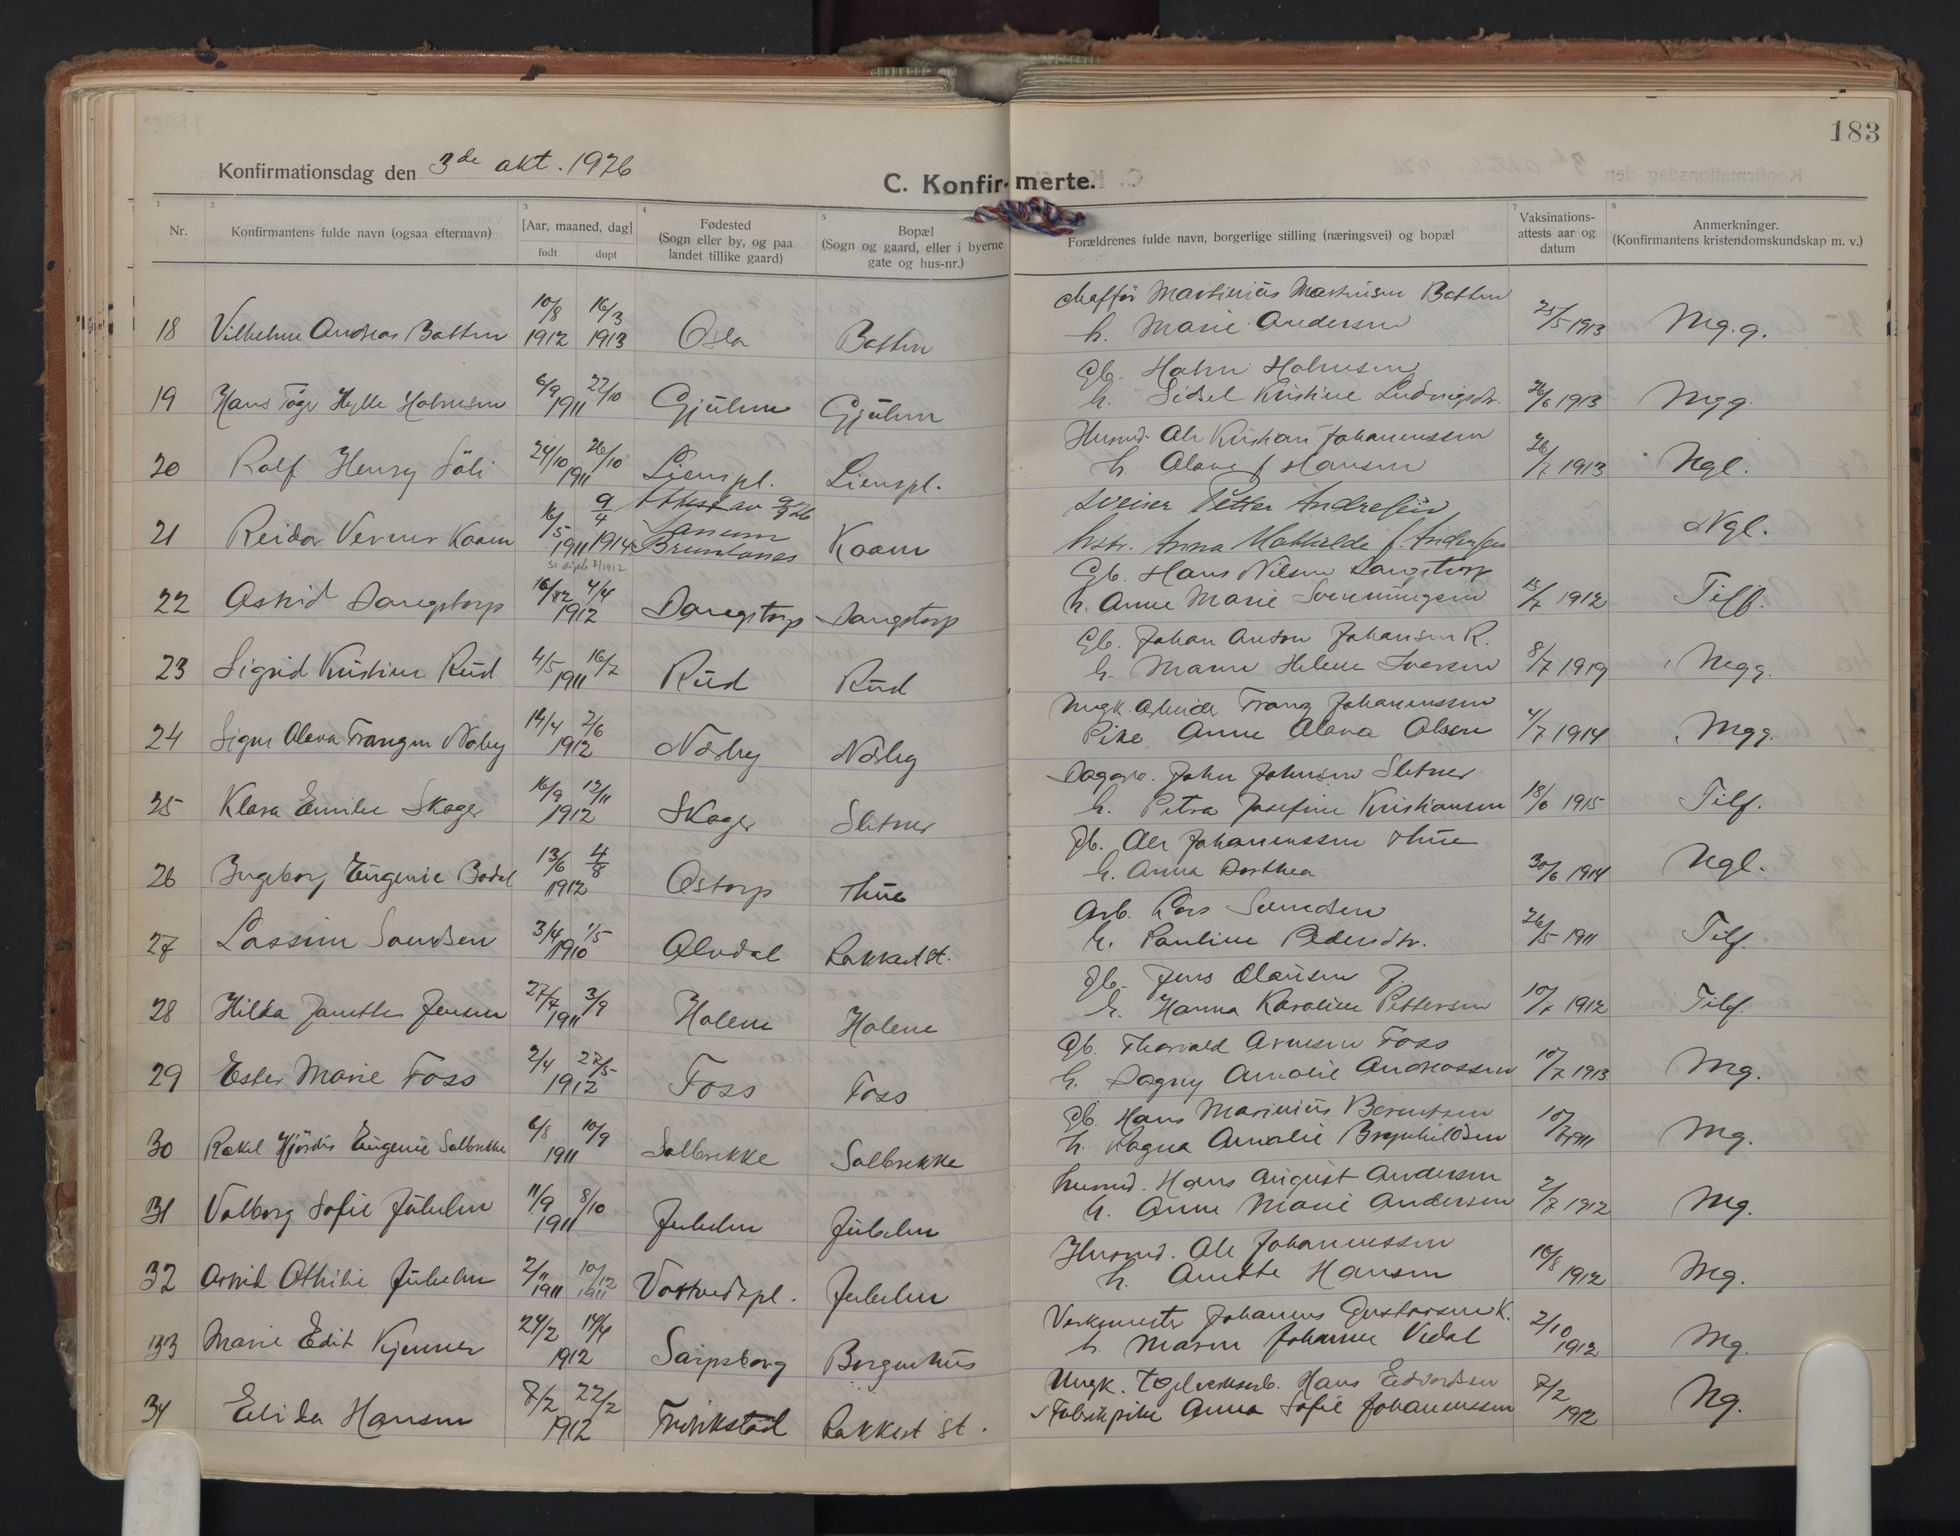 183
Konfirmationsdag den 3de okt. 1926
C. Konfirmerte.
1 2 3 4 5 7 8
Nr.
Konfirmantens fulde navn (ogsaa efternavn)
[Aar, maaned, dag]
født døpt
Fødested
(Sogn eller by, og paa
landet tillike gaard)
Bopæl
(Sogn og gaard, eller i byerne
gate og hus-nr.)
Forældrenes fulde navn, borgerlige stilling (næringsvei) og bopæl
Vaksinations-
attests aar og
datum
Anmerkninger.
(Konfirmantens kristendomskundskap m. v.)
Martinius Martinsen Botten
18 Vilhelm Andreas Botten 10/8 1912 16/3 1913 Oslo Botten h. Marie Andersen 25/5 1913 Mg.g.
Gb. Holm Holmsen
19 Hans Hylle Holmsen 6/9 22/10 1911 Gjulem Gjulem h. Sidsel Kristine Ludvigsdr. 26/6 1913 Mgg.
Husmd. Ole Kristian Johannessen
20 Rolf Henry Söli 24/10 26/10 1911 Lienspl. Lienspl. h. Olava Hansen 26/7 1913 Ngl.
Attest av
Sveiser Petter Andresen
21 Reidar Verner Kaam 16/5 1911 9/4 1914 Sanum Brunlanes Kaam hstr. Anna Mathilde f. Andersen Ngl.
Gb. Hans Nilsen Dangstorp
22 Astrid Dangstorp 4/4 1912 Dangstorp Dangstorp h. Anne Marie Svenningsen 15/7 1912 Tilf.
Gb. Johan Anton Johansen R.
23 Sigrid Kristine Rud 4/5 16/7 1911 Rud Rud h. Maren Helene Iversen 8/7 1919 Mgg.
Ungk. Arbeider Franz Johannessen
24 Signe Olava Frangen Nøsby 14/4 2/6 1912 Nøsby Nøsby Pike Anne Olava Olsen 4/7 1914 Mgg.
John Johnsen Sletner
25 Klara Emilie Skoger 16/9 1912 Skoger Sletner h. Petra Josefine Kristiansen 18/6 1915 Tilf.
Gb. Ole Johannessen Hue
26 Ingeborg Eugenie Bodal 13/6 4/8 1912 Ostorp Hue h. Anna Dorthea 30/6 1914 Ngl.
Arb. Lars Svendsen
27 3/4 1/5 1910 Alvdal Rakkest st. h. Pauline Pedersdtr. 26/5 1911 Tilf.
Gb. Jens Olausen J.
28 Hilda Janette Jensen 27/7 3/9 1911 Holene Holene h. Hanna Karoline Pettersen 10/7 1912 Tilf.
Gb. Thorvald Arnesen Foss
29 Ester Marie Foss 2/4 27/5 1912 Foss Foss h. Dagny Amalie Andreassen 10/7 1913 Mg.
Gb. Hans Marinius Berntsen
30 Rakel Hjördis Eugenie Solbrekke 6/8 10/9 1911 Solbrekke Solbrekke h. Ragna Amalie Brynhildsen 10/7 1911 Mg.
Husmd. Hans August Andersen
31 Valborg Sofie Jubelen 11/9 8/10 1911 Jubelen Jubelen h. Anne Marie Andersen 2/7 1912 Mg.
Husmd. Ole Johannessen
32 Astrid Othilie Jubelen 2/11 1911 10/12 1911 Jubelen h. Anette Hansen 10/8 1912 Mg.
Verksmester Johannes Gustavsen K.
33 Marie Edit Kjenner 24/2 14/4 1912 Sarpsborg Borgenhus h. Maren Johanne Vedal 2/10 1912 Mg.
Ungk. Teglverksarb. Hans Edvardsen
34 Elida Hansen 8/2 22/2 1912 Fredrikstad Rakkest st. Fabrikpike Anna Sofie Johannessen 7/2 1912 Ng.